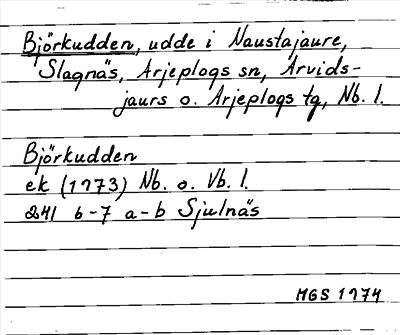 Björkudden, udde i Naustajaure,
Slagnäs, Arjeplogs sn, Arvids-
jaurs o. Arjeplogs tg, Nb. l.
Björkudden
ek (1973) Nb. o. Vb. l.
24I 6-7 a-b Sjulnäs
MGS 1974